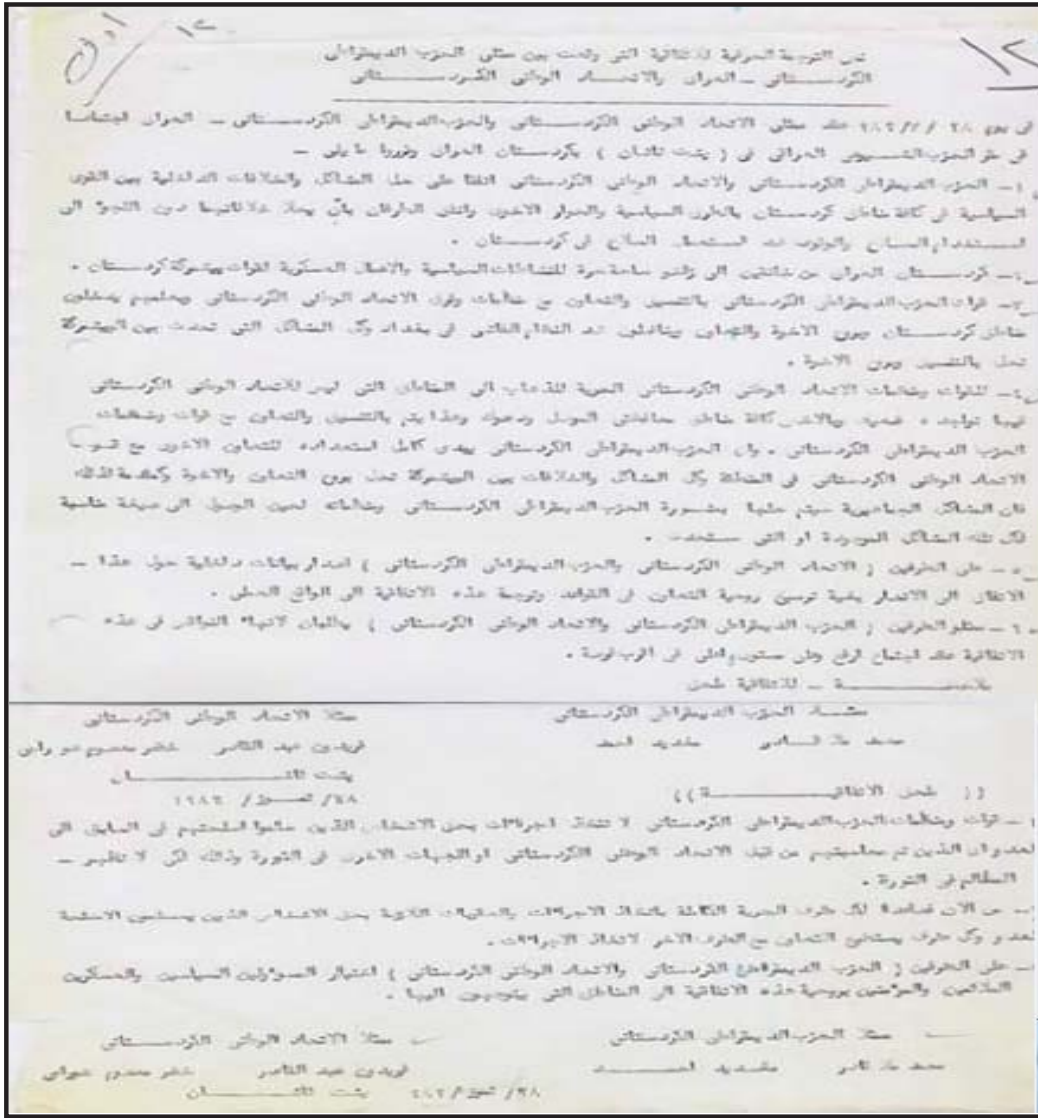 نص الترجمة العربية للاتفاقية التي وقعت بين ممثلي الحزب الديمقراطي
الكردستاني - العراق والاتحاد الوطني الكردستاني
عقد ممثلي الاتحاد الوطني الكردستاني والحزب الديمقراطي الكردستاني - العراق اجتماعا
في مقر الحزب الشيوعي العراقي في ( پشت ئاشان ) بكردستان العراق وقرروا ما يلي -
١- الحزب الديمقراطي الكردستاني والاتحاد الوطني الكردستاني اتفقا على حل المشاكل والخلافات الداخلية بين القوى
السياسية في كافة مناطق كردستان بالطرق السياسية والحوار الاخوي واتفق الطرفان بأن يحلا خلافاتهما دون اللجوء الى
استخدام السلاح والوقوف ضد استعمال السلاح في كردستان .
٢- كردستان العراق من خانقين الى زاخو ساحة حرة للنشاطات السياسية والاعمال العسكرية لقوات پيشمرگة كردستان .
٣- قوات الحزب الديمقراطي الكردستاني بالتنسيق والتعاون مع منظمات وقوات الاتحاد الوطني الكردستاني
مناطق كردستان وبروح الاخوة والتعاون ويناضلون ضد النظام الفاشي في بغداد وكل المشاكل التي تحدث بين الپيشمرگة
تحل بالتنسيق وبروح الاخوة .
٤- لقوات ومنظمات الاتحاد الوطني الكردستاني الحرية للذهاب الى المناطق التي ليس للاتحاد الوطني الكردستاني
فيها كافة مناطق محافظتي الموصل ودهوك وهذا يتم بالتنسيق والتعاون مع قوات ومنظمات
الحزب الديمقراطي الكردستاني . وان الحزب الديمقراطي الكردستاني يبدي كامل استعداده للتعاون الاخوي مع قوات
الاتحاد الوطني الكردستاني في المنطقة وكل المشاكل والخلافات بين الپيشمرگة تحل بروح التعاون والاخوة
فان المشاكل الجماهيرية سيتم حلها بمشورة الحزب الديمقراطي الكردستاني ومنظماته لحين الوصول الى صيغة مناسبة
لكل تلك المشاكل الموجودة او التي ستحدث .
٥- على الطرفين ( الاتحاد الوطني الكردستاني والحزب الديمقراطي الكردستاني ) اصدار بيانات داخلية حول هذا -
الاتفاق الى الانصار بغية ترسيخ روحية التعاون في القواعد وترجمة هذه الاتفاقية الى الواقع العملي .
٦- ممثلو الطرفين ( الحزب الديمقراطي الكردستاني والاتحاد الوطني الكردستاني ) في هذه
الاتفاقية عقد اجتماع ارفع وعلى مستوى اعلى في اقرب فرصة .
للاتفاقية ملحق
ممثلا الاتحاد الوطني الكردستاني
الحزب الديمقراطي الكردستاني
فريدون عبد القادر
(( ملحق الاتفاقية ))
١- قوات ومنظمات الحزب الديمقراطي الكردستاني لا تتخذ اجراءات بحق الاشخاص الذين سلموا اسلحتهم في السابق الى
العدو او الذين تم محاسبتهم من قبل الاتحاد الوطني الكردستاني او الجهات الاخرى في الثورة وذلك لكي لا
في الثورة .
٢- من الآن فصاعدا لكل طرف الحرية الكاملة باتخاذ الاجراءات والعقوبات اللازمة بحق الاشخاص الذين يسلمون الاسلحة
للعدو وكل طرف يستطيع التعاون مع الطرف الاخر لاتخاذ الاجراءات .
٣- على الطرفين ( الحزب الديمقراطي الكردستاني والاتحاد الوطني الكردستاني ) اختيار المسؤولين السياسيين والعسكريين
الملائمين والمؤمنين بروحية هذه الاتفاقية الى المناطق التي يتوجهون اليها .
ممثلا الحزب الديمقراطي الكردستاني
ممثلا الاتحاد الوطني الكردستاني
فريدون عبد القادر